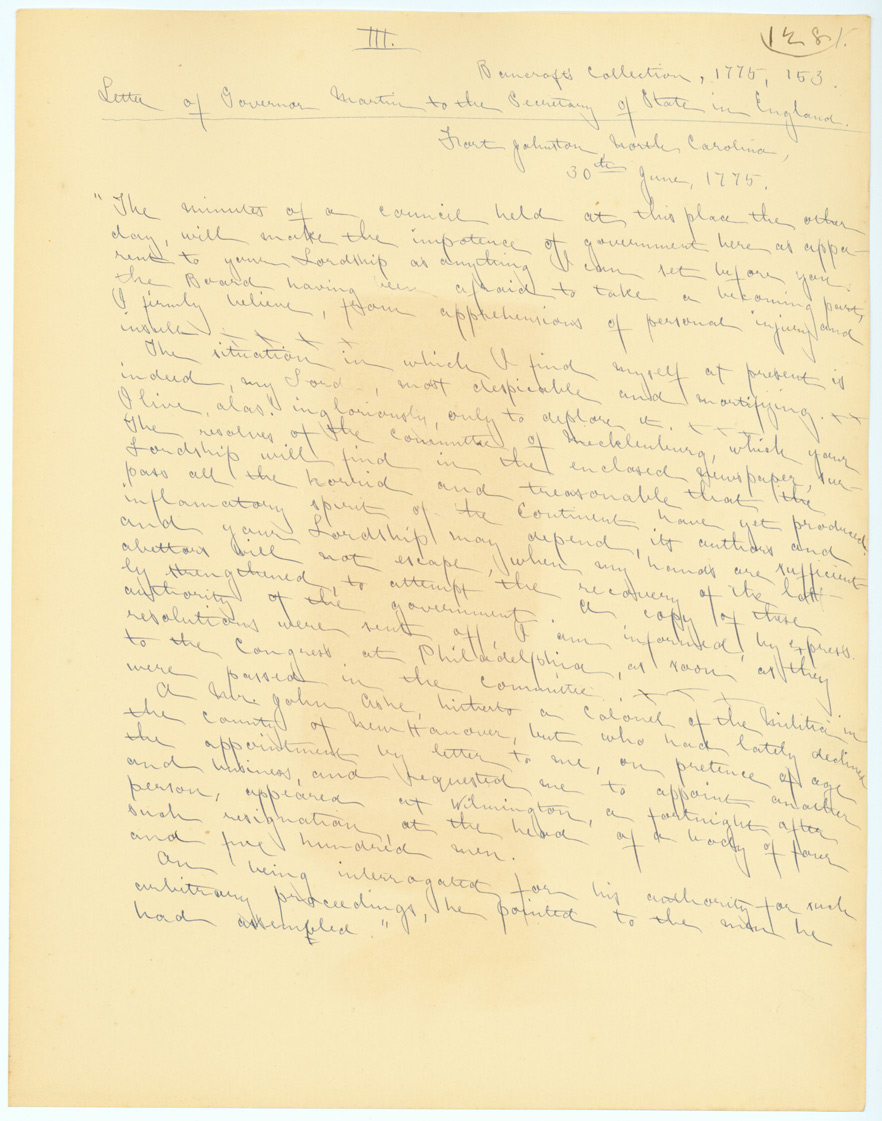 III.
Bancroft's Collection, 1775, 153.
Letter of Governor Martin to the Secretary of State in England.
Fort Johnston, North Carolina,
30th June, 1775.
"The minutes of a council held at this place the other
day, will make the impotence of government here as appa-
rent to your Lordship as anything I can set before you.
The Board having been afraid to take a becoming part,
I firmly believe, from apprehensions of personal injury and
insult. x x x x
The situation in which I find myself at present is
indeed, my Lord, most despicable and mortifying. x x
I live, alas! ingloriously, only to deplore it. x x x
The resolves of the Committee of Mecklenburg, which your
Lordship will find in the enclosed newspaper, sur-
pass all the horrid and treasonable that the
inflamatory spirit of the Continent have yet produced.
and your Lordship may depend, its authors and
abettors will not escape, when my hands are sufficient-
ly strengthened, to attempt the recovery of the lost
authority of the government. A copy of these
resolutions were sent off, I am informed, by express
to the Congress at Philadelphia, as soon as they
were passed in the committee. x x x
A Mr. John Ashe, hitherto a Colonel of the Militia in
the County of New Hanover, but who had lately declined
the appointment by letter to me, on pretence of age
and business, and requested me to appoint another
person, appeared at Wilmington, a fortnight after
such resignation, at the head of a body of four
and five hundred men.
On being interrogated for his authority for such
arbitrary proceedings, he pointed to the men he
had assembled."